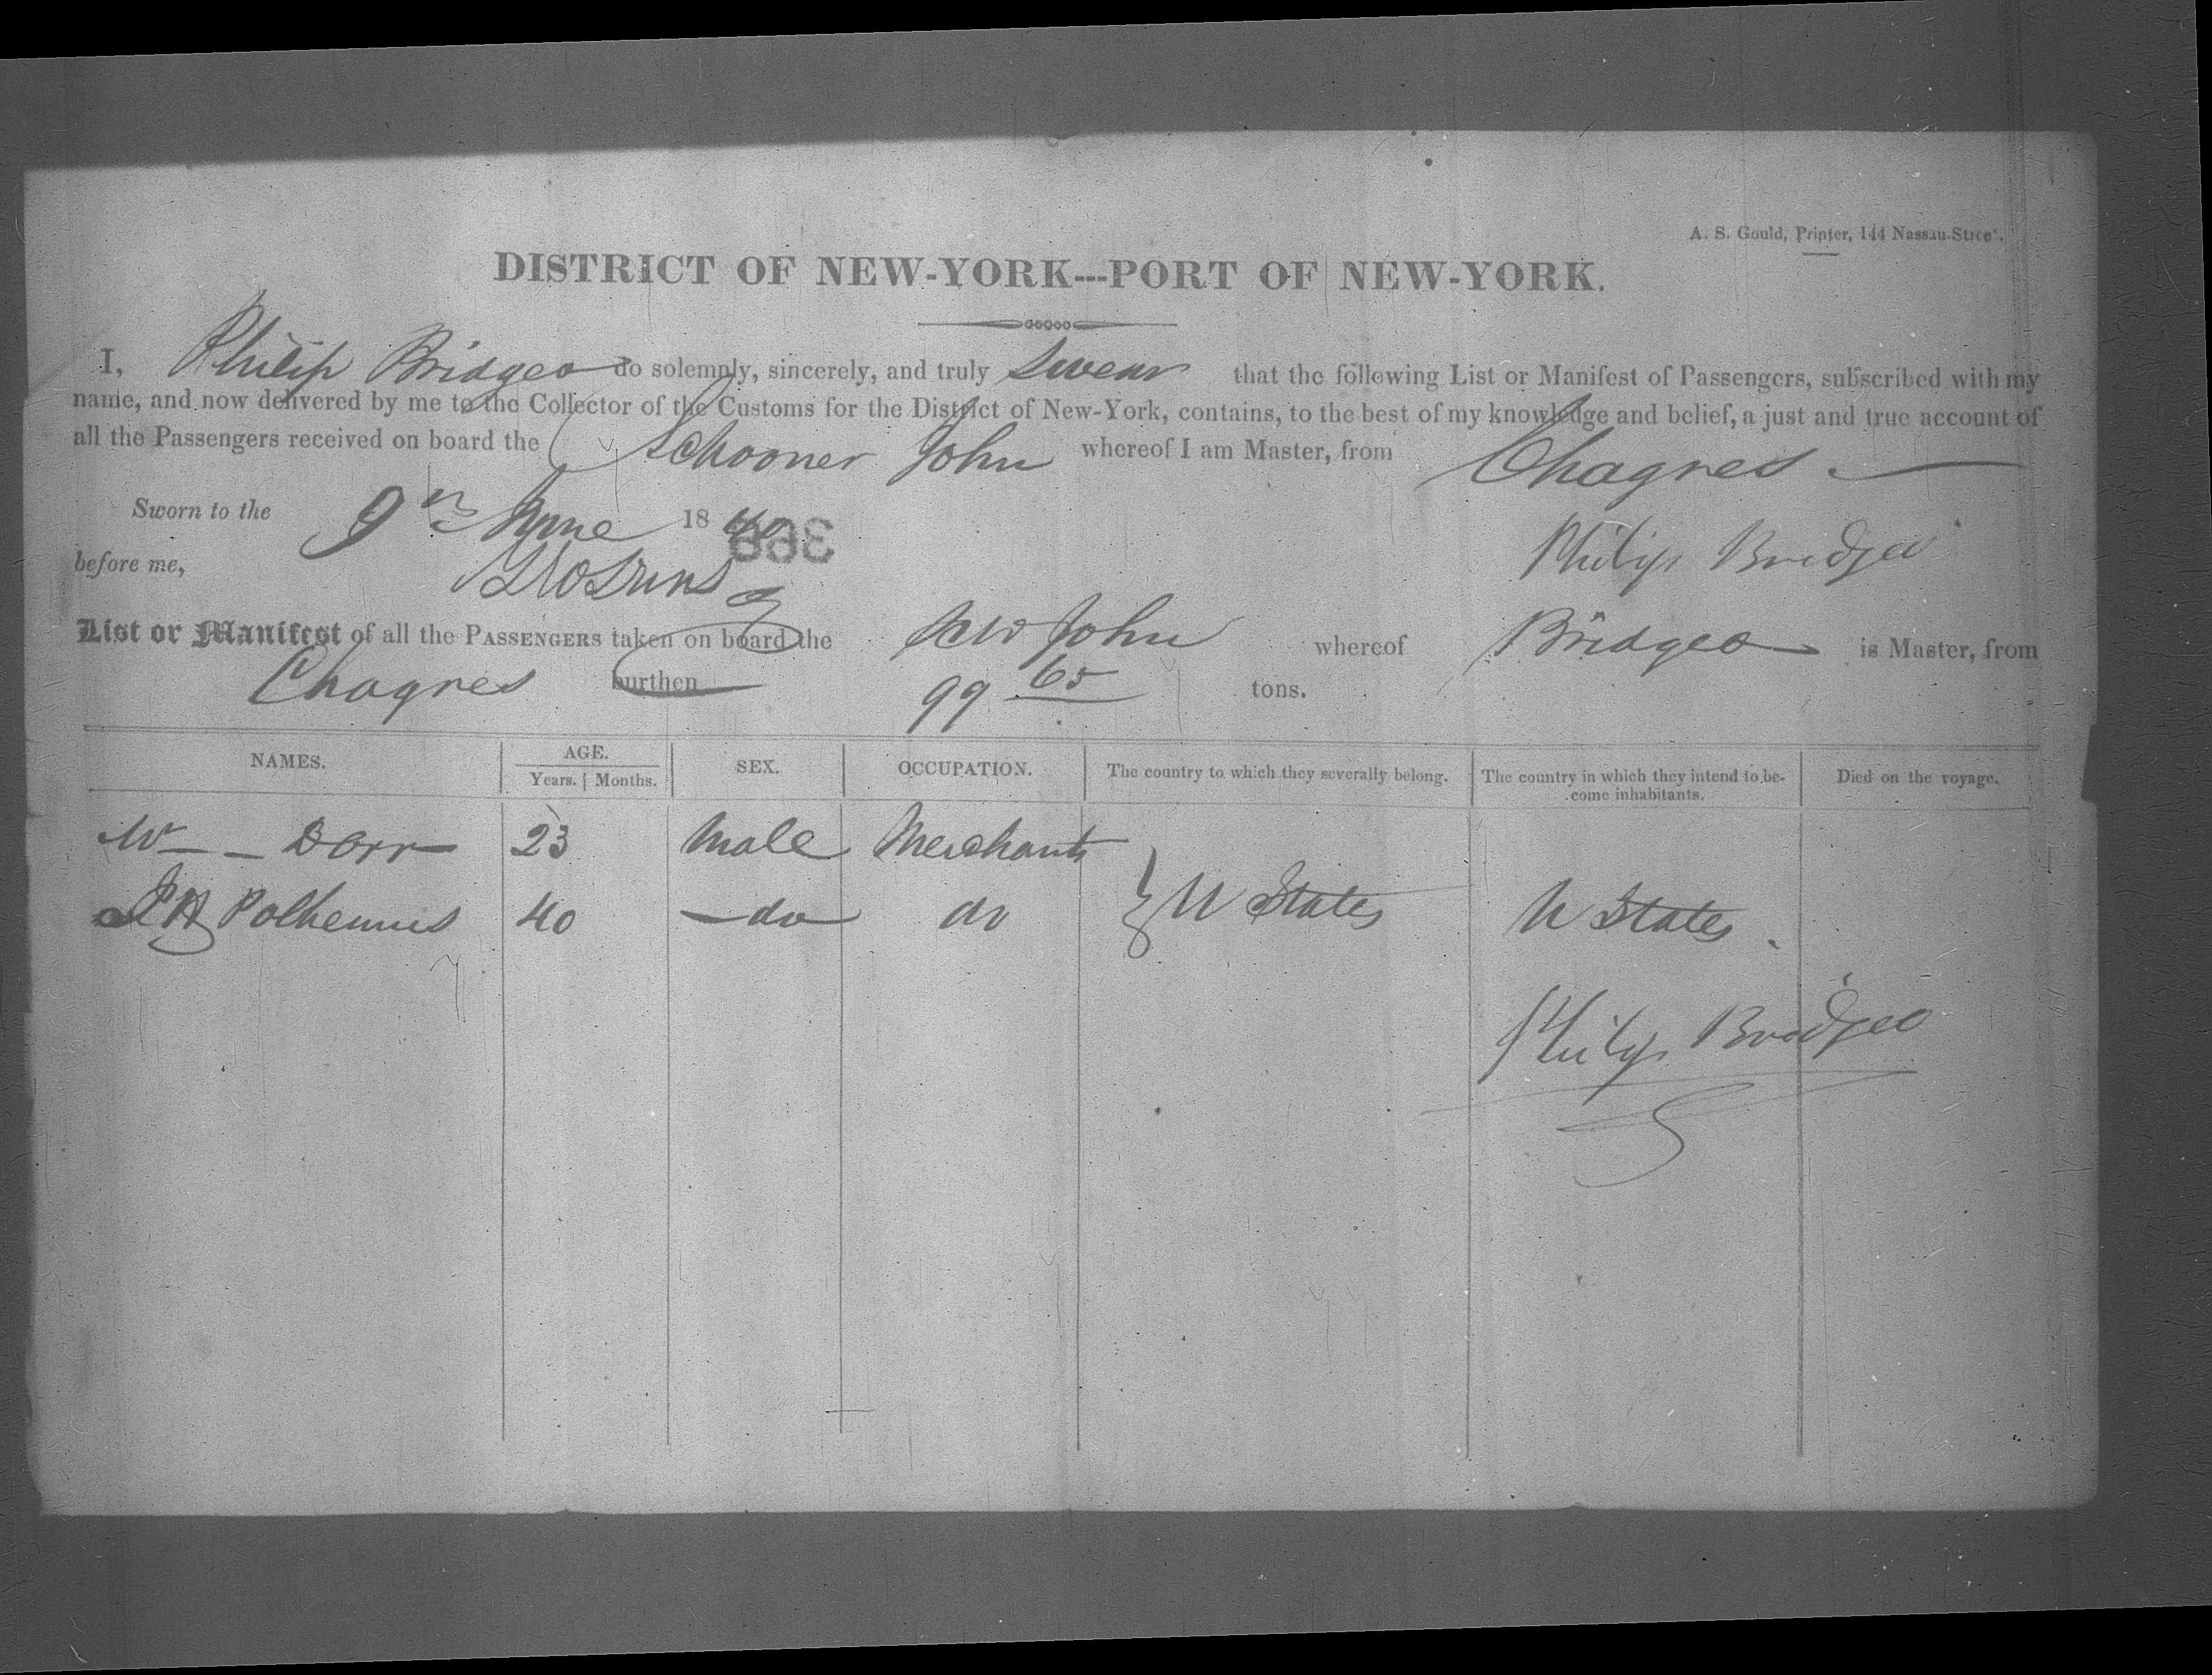 A. S. Gould, Printer, 144 Nassau-Street.
DISTRICT OF NEW-YORK---PORT OF NEW-YORK.
I, Philip Bridges do solemnly, sincerely, and truly swear that the following List or Manifest of Passengers, subscribed with my
name, and now delivered by me to the Collector of the Customs for the District of New-York, contains, to the best of my knowledge and belief, a just and true account of
all the Passengers received on board the Schooner John whereof I am Master, from Chagres
Sworn to the 9th June 1840
366
before me,
Philip Bridges
List or Manifest of all the PASSENGERS taken on board the Schr John whereof Bridges is Master, from
Chagres burthen 99 65 tons.
NAMES. AGE. SEX. OCCUPATION. The country to which they severally belong. The country in which they intend to become inhabitants. Died on the voyage.
Years. Months.
Wm Dorr 23 Male Merchants
Polhemus 40 do do U States U States
Philip Bridges